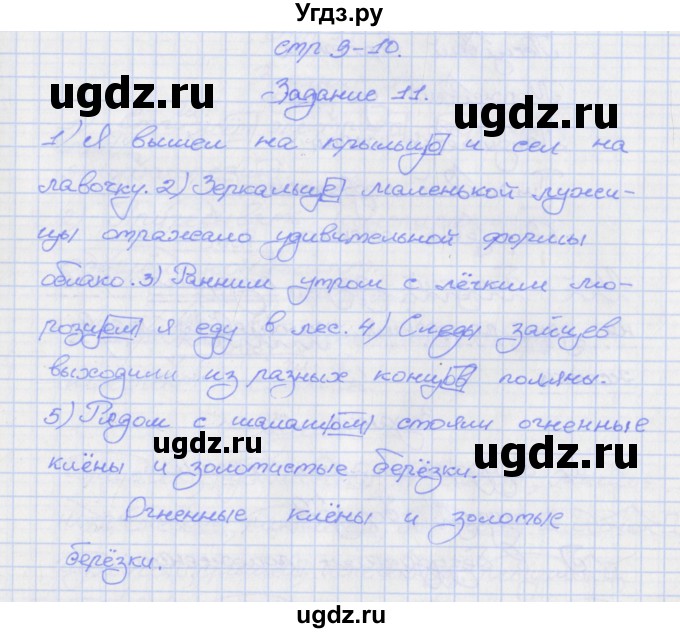 Угдз.ру
стр 9-10.
ugdz.ru ugdz.ru
Задание 11.
1) Я вышел на крыльцо и сел на
лавочку. 2) Зеркальце маленькой лужи-
цы отражало удивительной формы
облако. 3) Ранним утром с лёгким мо-
розцем я еду в лес. 4) Следы зайцев
выходили из разных концов поляны.
5) Рядом с шалашом стояли огненные
ugdz.ru ugdz.ru
клёны и золотистые берёзки.
Огненные клёны и золотые
берёзки.
ugdz.ru